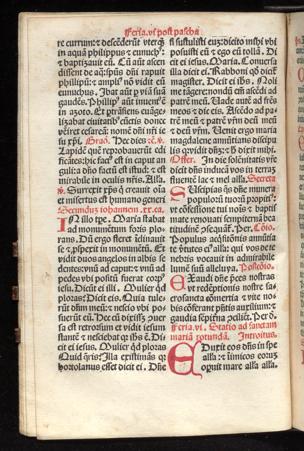 Feria.vi post pascha
re currum: et descēderūt uterq3
in aquā philippus et eunuch9:
et baptizauit eū. Cū autē ascen
dissent de aq̄: sp̄s dn̄i rapuit
philippū: et ampli9 nō vidit eū
eunuchus. Ibat autē p viā suā
gaudēs. Philipp9 autē inuent9 ē
in azoto. Et prāsiens euange-
lizabat ciuitatib9 cūctis donec
veniret cesareā: nomē dn̄i nr̄i ie
su xp̄i. Grad. Hec dies. ꝟ.
Lapidē quē reprobauerūt edi
ficātes: hic fact9 est in caput an
guli: a dn̄o factū est istud: et est
mirabile in oculis nr̄is. Alla.
ꝟ. Surrexit xp̄s q creauit oīa
et misertus est humano generi
Secundum iohannem. xx. ca.
IN illo tpe. Maria stabat
ad monumētum foris plo-
rans. Dū ergo fleret īclinauit
se et pspexit in monumētū. Et
vidit duos angelos in albis se
dentes: vnū ad caput et vnū ad
pedes vbi positū fuerat corp9
iesu. Dicūt ei illi. Mulier qd
ploras: Dicit eis. Quia tule-
rūt dn̄m meū: et nescio vbi po-
suerūt eū. Hec cū dixisset: 9uer
sa est retrorsum et vidit iesum
stantē: et nesciebat q ihs ē. Di-
cit ei iesus. Mulier qd ploras
Quid q̄ris: Illa existimās q
hortolanus esset dicit ei. Dn̄e
si sustulisti eū: dicito mihi vbi
posuisti eū et ego eū tollā. Di
cit ei iesus. Maria. Conuersa
illa dicit ei. Rabboni qd dicit̄
magister. Dicit ei ihs. Noli
me tāgere: nondū em̄ ascēdi ad
patrē meū. Uade autē ad frēs
meos: et dic eis. Ascēdo ad pa-
trē meū et patrē vr̄m deū meū
et deū vr̄m. Uenit ergo maria
magdalene annūtians discipu
lis q vidit dn̄m: et h dixit mihi.
Offer. In die solēnitatis vr̄e
dicit dn̄s inducā vos in terrā
fluentē lac et mel alla. Secreta
SUscipias qs dn̄e munera
populorū tuorū propiti9:
vt cōfessione tui noīs et baptis
mate renouati sempiternā bea
titudinē 9sequāt. Per. Cōio.
Populus acq̄sitiōis annūcia
te virtutes ei9 alla: qui vos de te
nebris vocauit in admirabile
lumē suū alleluya. Postcōio.
EXaudi dn̄e p̄ces nostras
vt redēptionis nostre sa-
crosancta cōmertia et vite no-
bis cōferant p̄ntis auxilium: et
gaudia sēpiterna 9cilient. Per d.
Feria. vi. Statio ad sanctam
mariā rotundā. Introitus.
EDuxit eos dn̄s in spe
alla: et inimicos eorum
operuit mare alla alla.